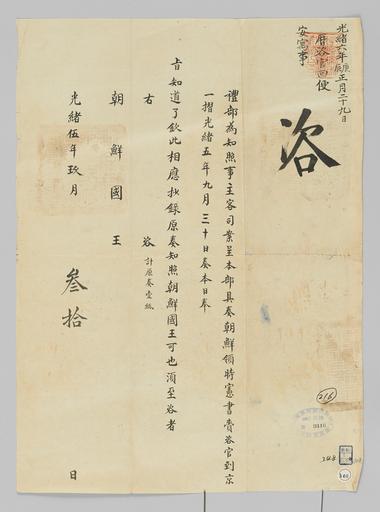 光緒六年庚辰正月二十九日
曆咨官回便
安寧事
咨
禮部為知照事主客司案呈本部具奏朝鮮領時憲書賫咨官到京
一摺光緒五年九月三十日奏本日奉
旨知道了欽此相應抄錄原奏知照朝鮮國王可也須至咨者
右 咨 計原奏壹紙
朝鮮國王
光緒伍年玖月 叁拾 日
216